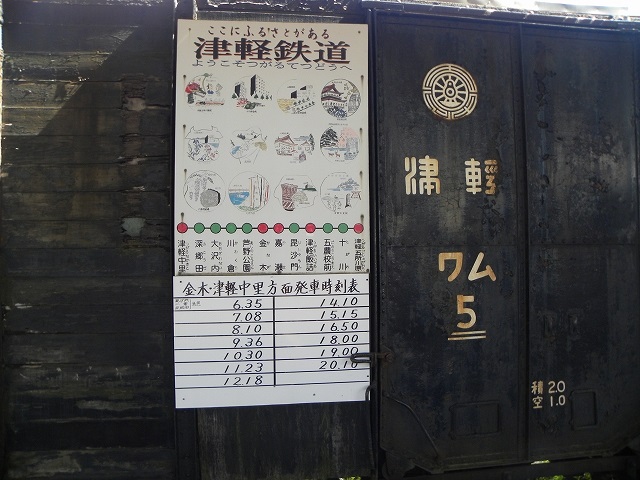 ここにふるさとがある
津軽鉄道
ようこそつがるてつどうへ
津軽中里
深郷田
大沢内
川倉
芦野公園
金木
嘉瀬
毘沙門
津軽飯詰
五農校前
十川
津軽五所川原
金木・津軽中里方面発車時刻表
6.35
7.08
8.10
9.36
10.30
11.23
12.18
14.10
15.15
16.50
18.00
19.00
20.10
津軽
ワム
5
積 2.0
空 1.0